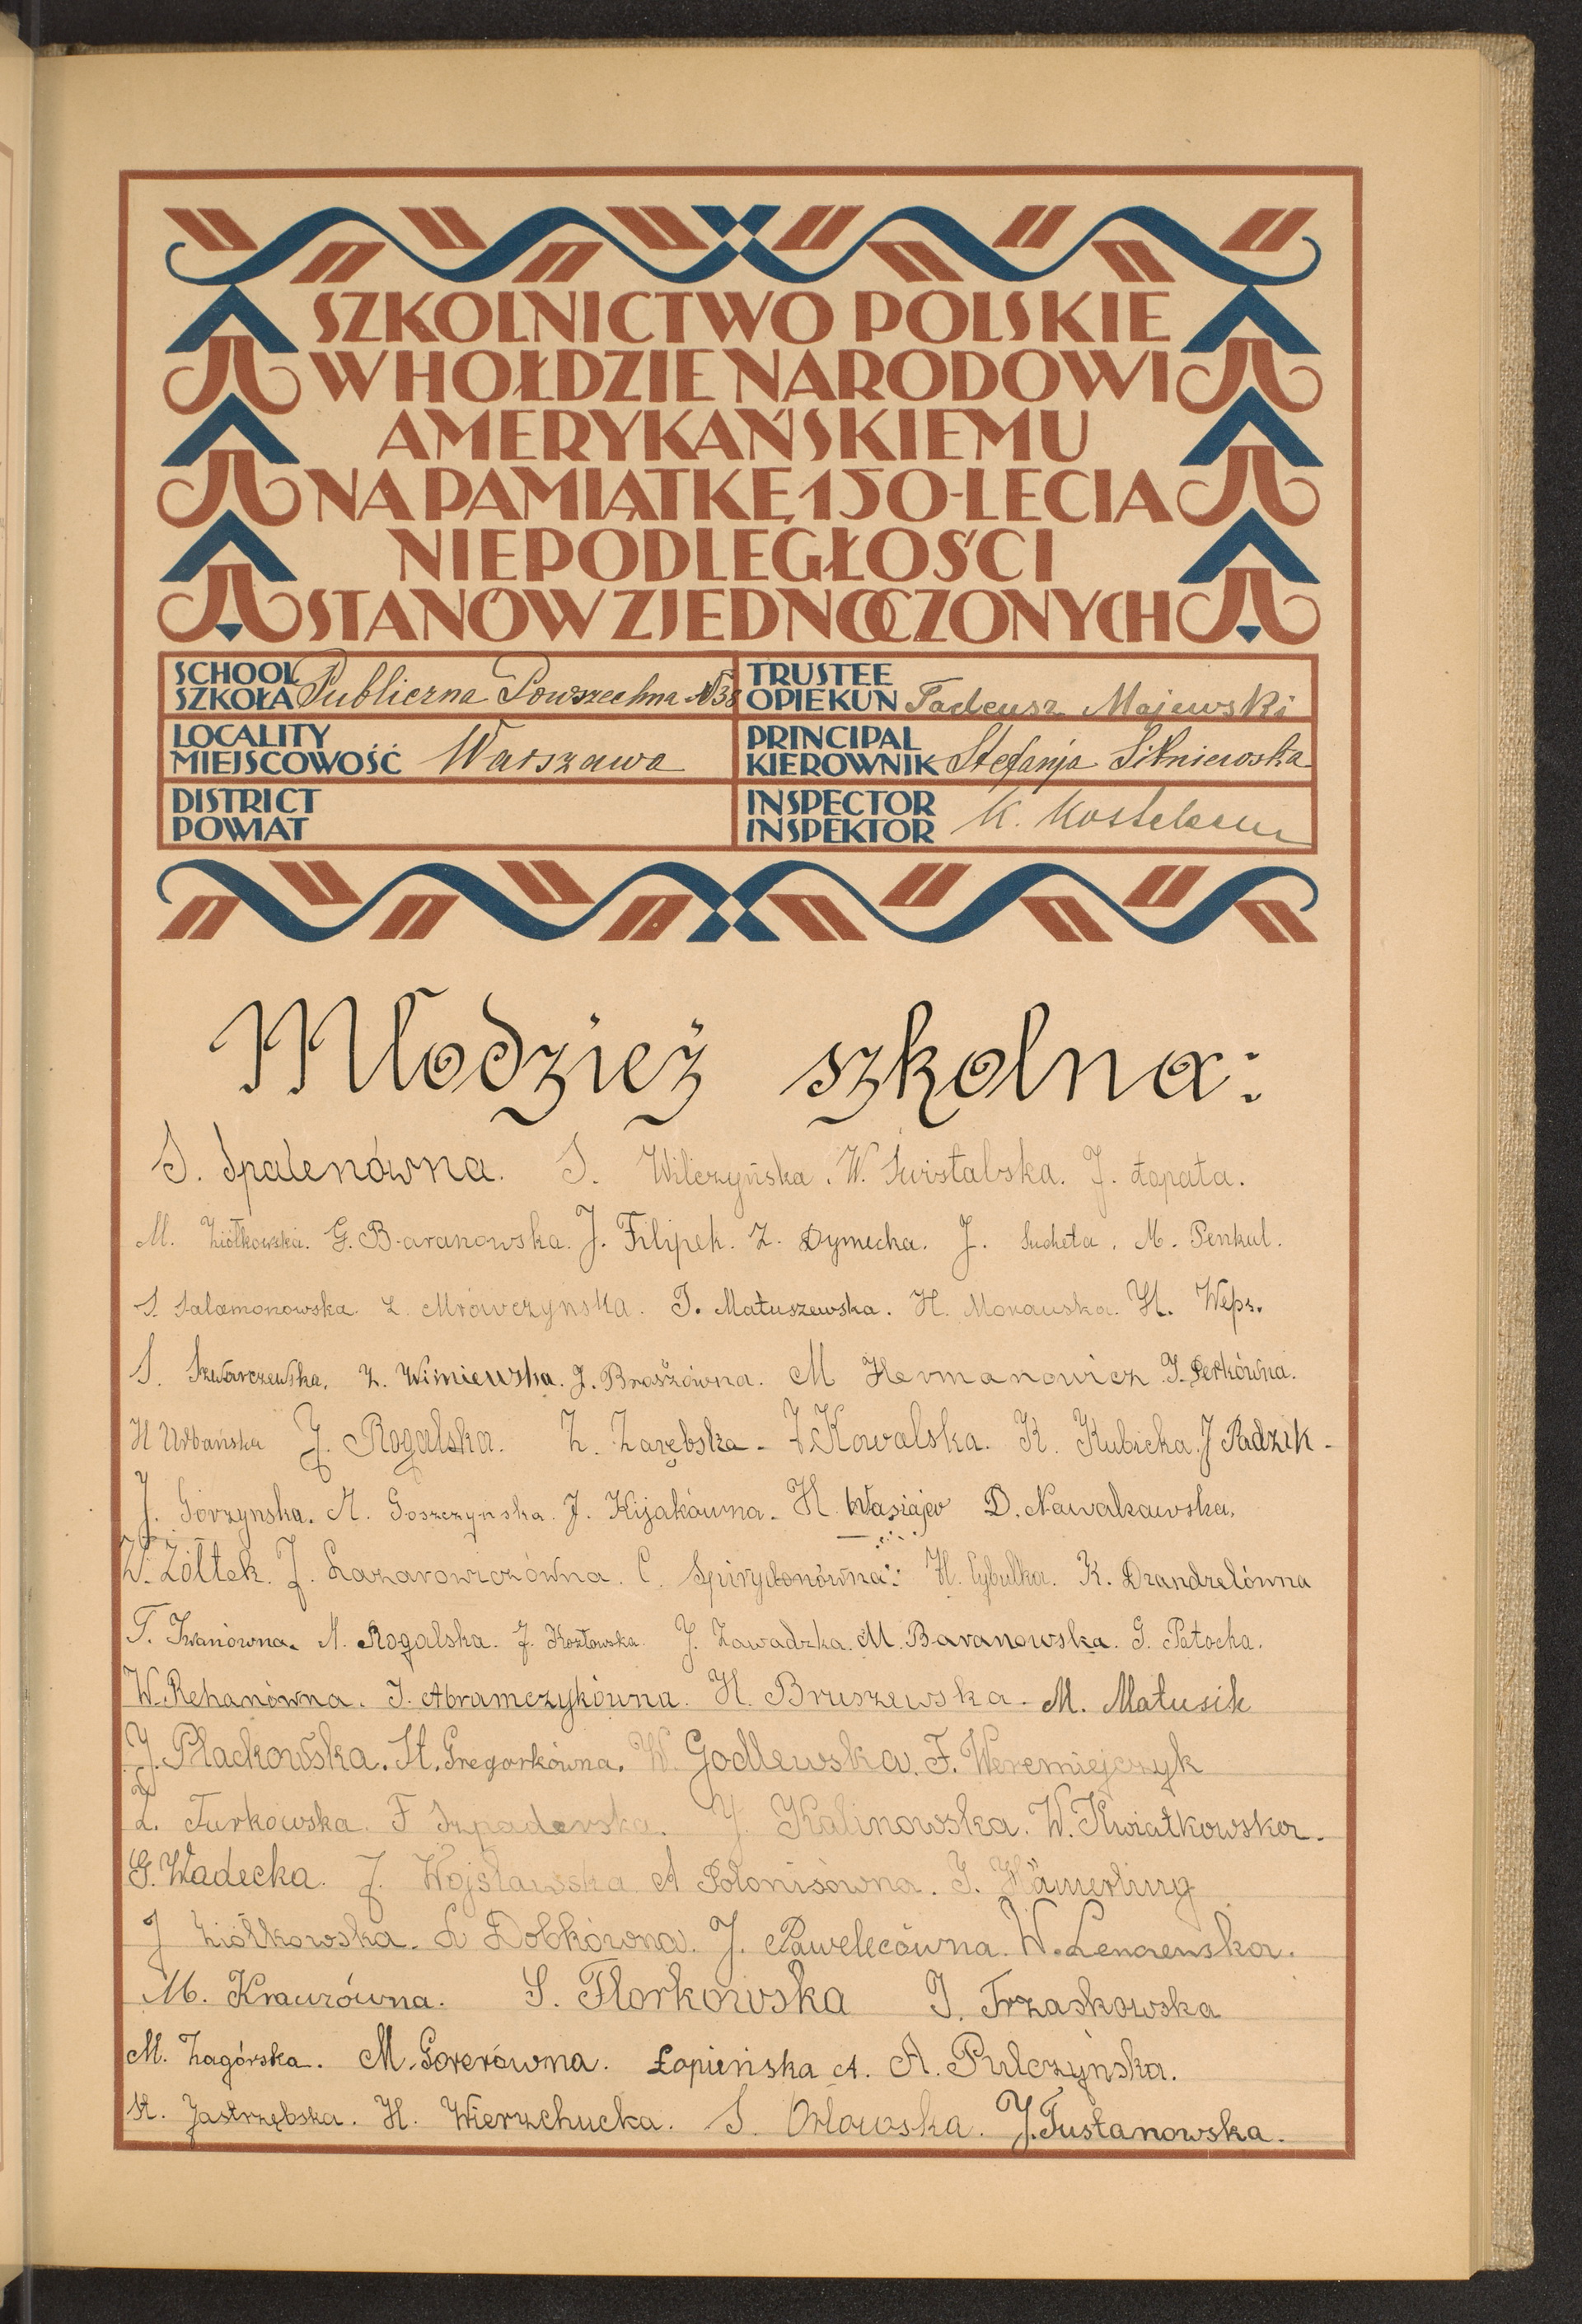 SZKOLNICTWO POLSKIE
W HOŁDZIE NARODOWI
AMERYKAŃSKIEMU
NA PAMIĄTKĘ 150-LECIA
NIEPODLEGŁOŚCI
STANÓW ZJEDNOCZONYCH
SCHOOL
SZKOŁA Publiczna Powszechna №38
TRUSTEE
OPIEKUN Tadeusz Majewski
LOCALITY
MIEJSCOWOŚĆ Warszawa
PRINCIPAL
KIEROWNIK Stefanja Sitniewska
DISTRICT
POWIAT
INSPECTOR
INSPEKTOR K.
Młodzież szkolna:
S. Spalenówna. S. Wilczyńska. W. Świstalska. J. Łopata.
M. Ziółkowska. G. Baranowska. J. Filipek. Z. Dymecka. J. Sucheta. M. Penkul.
S. Salamonowska. Z. Mrówczyńska. I. Matuszewska. H. Morawska. H. Wepr.
S. Szwarczewska. Z. Wiśniewska. J. Broszówna. M Hermanowicz I. Perkówna.
H Urbańska J. Rogalska. Z. Zarębska - J. Kowalska. K. Kubicka. J Radzik -
J. Górzynska. A. Goszczyńska. J. Kijakówna. H. Własiajew D. Nawakawska.
W. Żółtek. J. Łazarowiczówna. C. Spirydonówna. H. Cybulka. K. Drandzelówna
T. Iwanówna. A. Rogalska. J. Kozłowska. J. Zawadzka. M. Baranowska. G. Patocka.
W. Rehanówna. J. Abramczykówna. H. Bruszewska. M. Matusik
J. Płackowska. St. Gregorkówna. W. Godlewska. F. Weremiejczyk
Z. Turkowska. F Szpaderska. J. Kalinowska. W. Kwiatkowska.
G. Wadecka. J. Wojsławska A Polonisówna. J. Hämerling
J Ziółkowska. A Dobkówna. J. Pawelecówna. W.
M. Krawzówna. S. Florkowska J. Trzaskowska
M. Zagórska. M. Gorerówna. Łopieńska A. A. Pulczyńska.
St. Jastrzębska. H. Wierzchucka. S. Orłowska. J. Tustanowska.